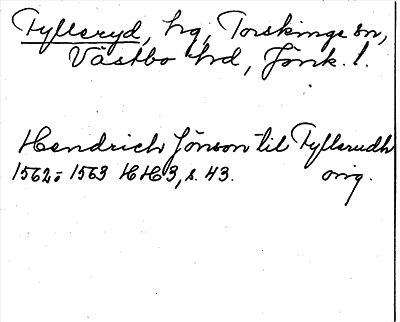 Fyllsryd, hg, Torskinge sn,
Västbo hd, Jönk. l.
Hendrich Jönson til Fyllsrudh
1562-1563 HH3, s. 43. orig.